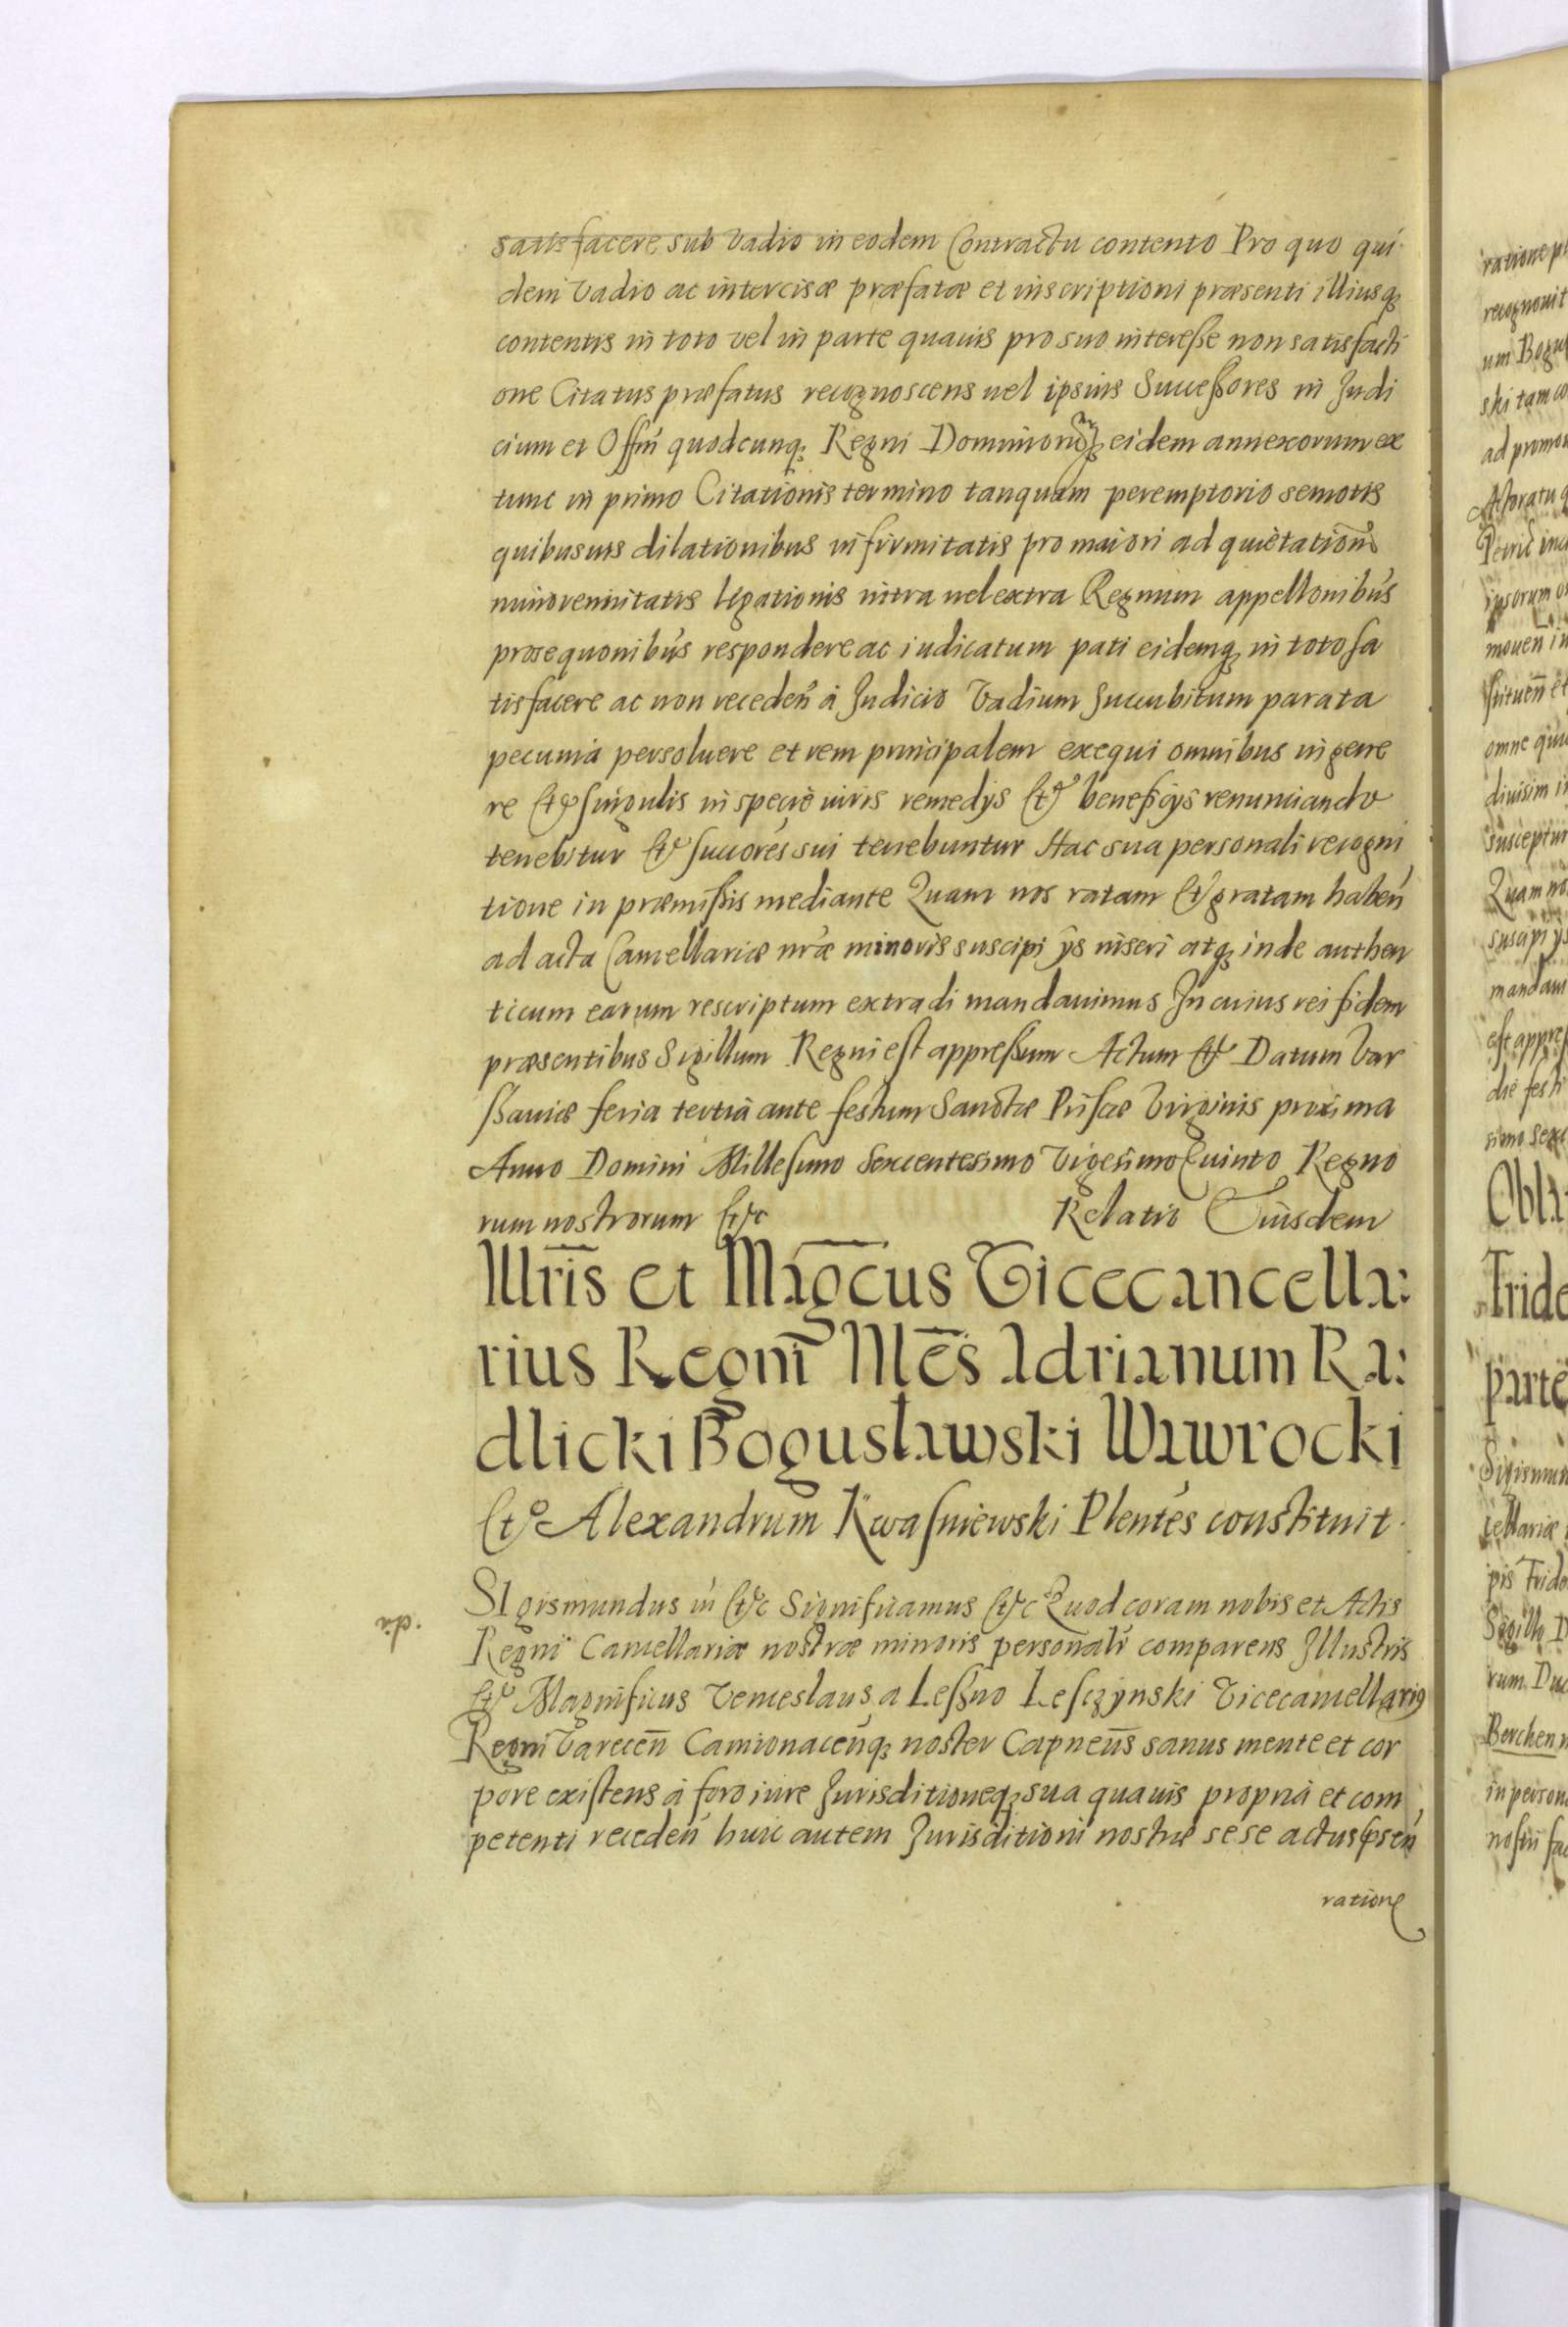 satisfacere sub vadio in eodem Contractu contento Pro quo qui
dem vadio ac intercisæ præfatæ et inscriptioni præsenti illiusq₃
contentis in toto vel in parte quavis pro suo interesse non satisfacti
one Citatus præfatus recognoscens vel ipsius Successores in Judi
cium et Offm̃ quodcunq₃ Regni Dominiorũq₃ eidem annexorum ex
tunc in primo Citationis termino tanquam peremptorio semotis
quibusuis dilationibus infirmitatis pro maiori ad quietationẽ
minorennitatis legationis intra uel extra Regnum appellonibus
prosequonibus respondere ac iudicatum pati eidemq₃ in toto sa
tisfacere ac non recedeñ á Judicio Vadium succubitum parata
pecunia persoluere et rem principalem exequi omnibus in gene
re et singulis in specie iuris remedijs et beneficijs renunciando
tenebitur et succores sui tenebuntur Hac sua personali recogni
tione in præmissis mediante Quam nos ratam et gratam habeñ
ad acta Cancellariæ nr̃æ minoris suscipi ijs inseri atq₃ inde authen
ticum earum rescriptum extradi mandauimus In cuius rei fidem
præsentibus Sigillum Regni est appressum Actum et Datum Var
ssaviæ feria tertia ante festum Sanctæ Priscæ Virginis proxima
Anno Domini Millesimo Sexcentesimo Vigesimo Quinto Regno
rum nostrorum etc Relatio Eiusdem
Illrĩs et Magcus Vicecancella:
rius Regni Mẽs Adrianum Ra:
dlicki Bogusławski Wawrocki
et Alexandrum Kwasniewski Plentes constituit
Sigismundus iii etc Significamus etc Quod coram nobis et Actis
Regni Cancellariæ nostræ minoris personalr comparens Illustris
et Magnificus Venceslaus a Lessno Lesczynski Vicecancellari9
Regni Varecen̄ Camionacen̄q₃ noster Capneus̄ sanus mente et cor
pore existens á foro iure Jurisditioneq₃ sua quavis propria et com
petenti recedeñ huic autem Jurisditioni nostræ sese actus p̃señ
ratione